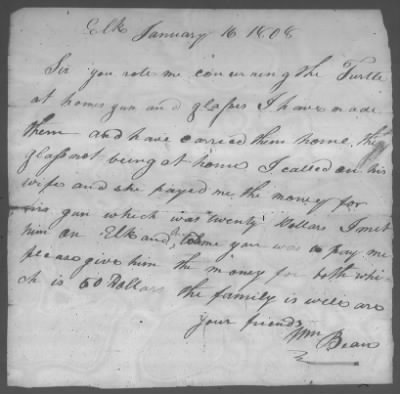 Elk January 16 1808
Sir you rote me concurning the Turtle
at homes gun and glasses I have made
them and have carried them home, the
glass not being at home I called on his
wife and she payed me the money for
his gun which was twenty Dollars I met
him on Elk and told me you was to pay me
please give him the money for both whi
ch is 60 Dollars the family is well are
your friend
Wm Bean